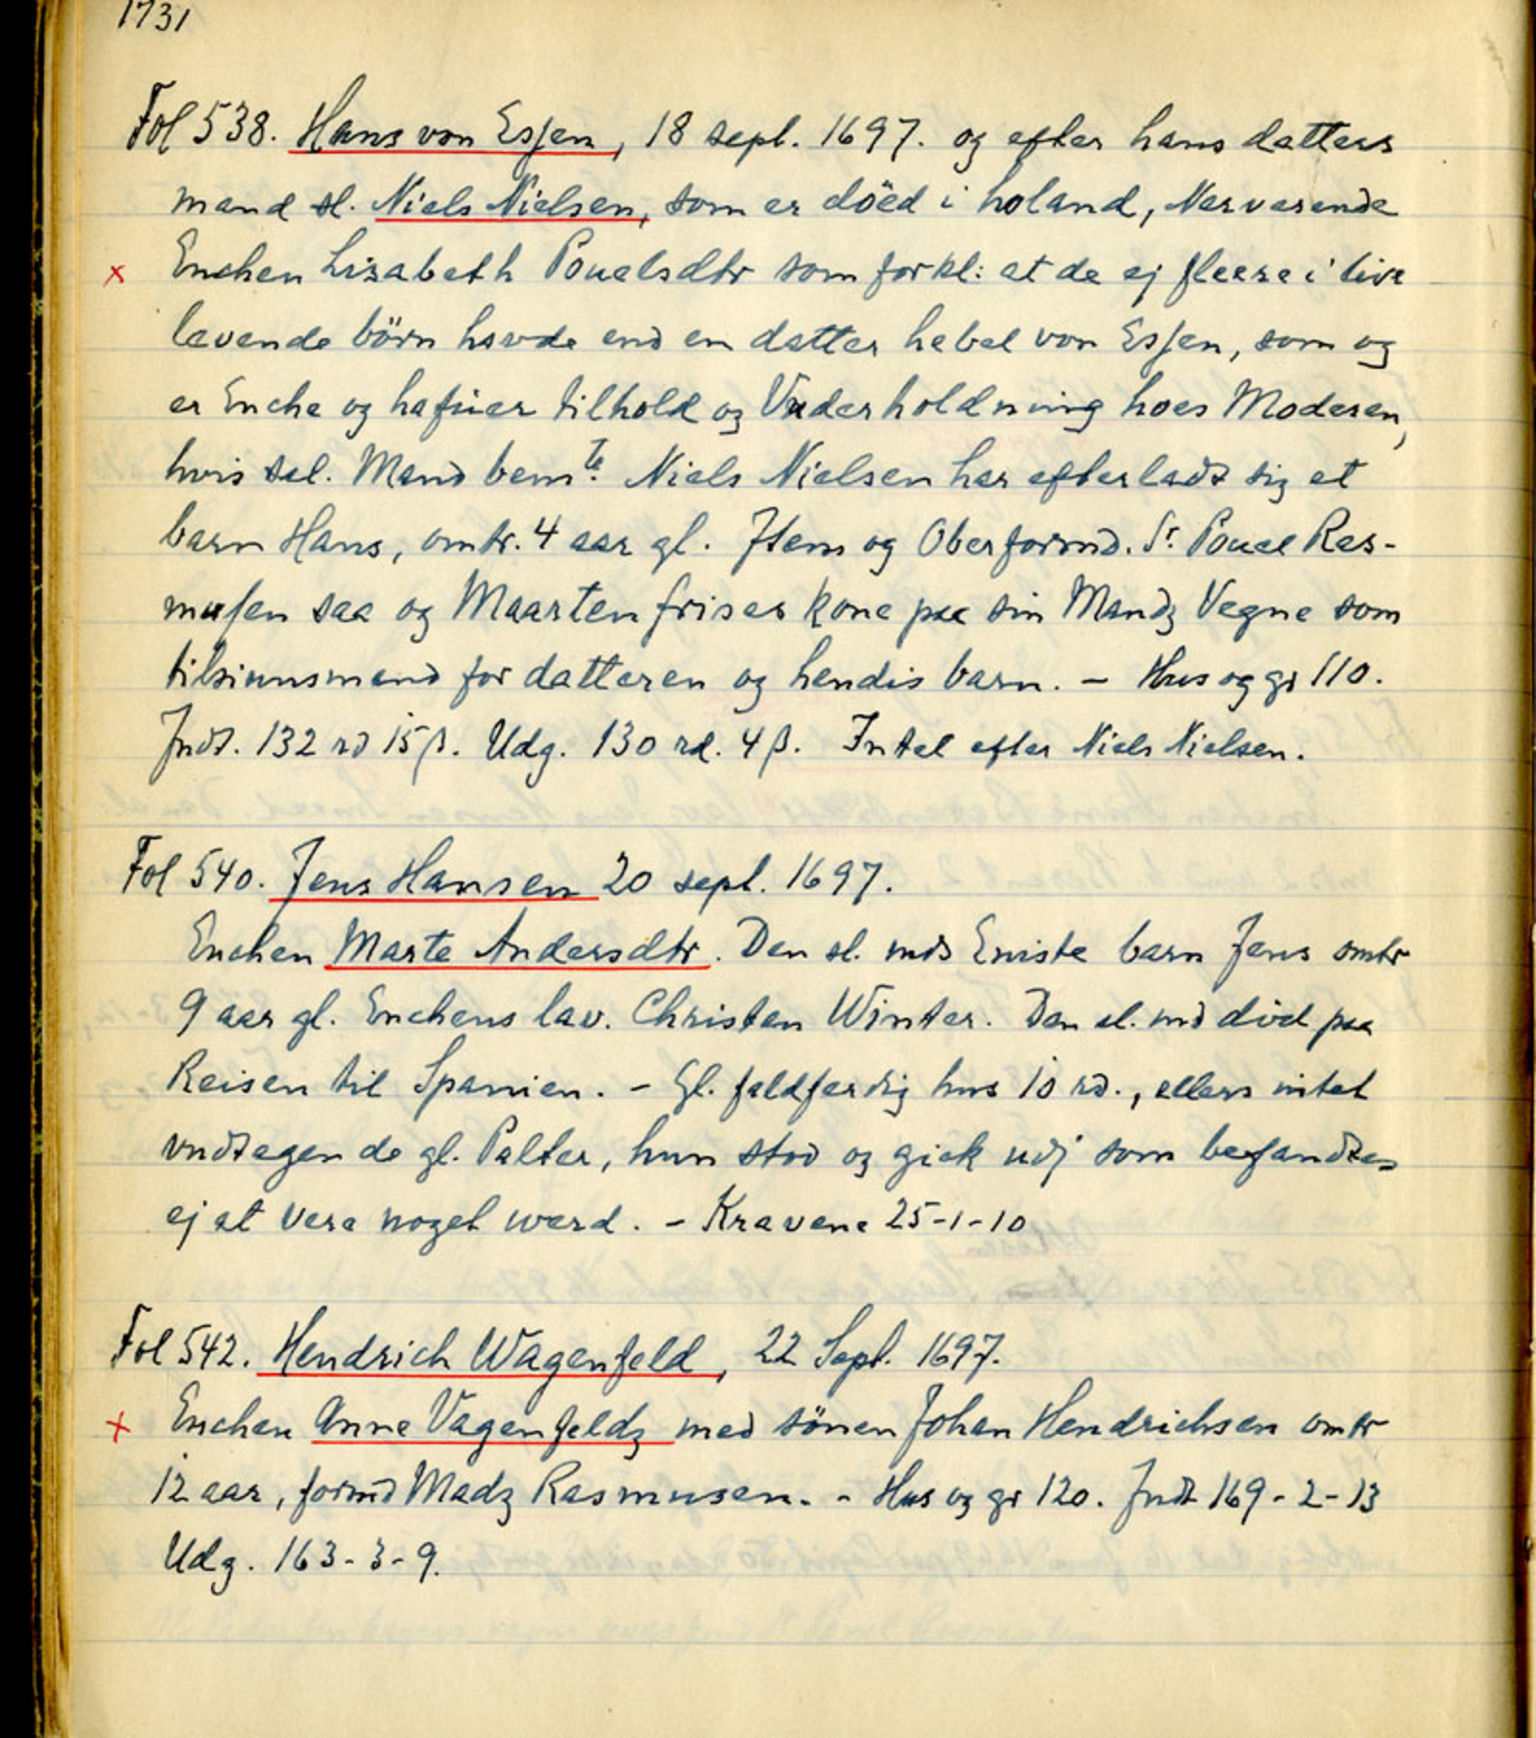 1731
Fol 538. Hans von Essen, 18 sept. 1697. og efter hans datters
mand sl. Niels Nielsen, som er döed i holand, Nerverende
x Enchen Lisabeth Pouelsdtr som forkl: at de ej fleere i live
levende börn havde end en datter hebel von Essen, som og
er Enche og hafuer tilhold og Underholdning hoes Moderen,
hvis sal. Mand bem.te Niels Nielsen har efterladt sig et
barn Hans, omtr. 4 aar gl. Item og Oberformd. Sr. Pouel Ras-
musen saa og Maarten frises kone paa sin Mandz Vegne som
tilsiunsmand for datteren og hendis barn. - Hus og gr 110.
Indt. 132 rd 15 β. Udg. 130 rd. 4 β. Intel efter Niels Nielsen.
Fol 540. Jens Hansen 20 sept. 1697.
Enchen Marte Andersdtr. Den sl. mds Eniste barn Jens omtr
9 aar gl. Enchens lav. Christen Winter. Den sl. md död paa
Reisen til Spanien. - Gl. faldferdig hus 10 rd., ellers intet
undtagen de gl. Palter, hun stod og gick udj som befandtes
ej at vere noget werd. - Kravene 25-1-10
Fol 542. Hendrich Wagenfeld, 22 Sept. 1697.
x Enchen Anne Vagenfeldz med sönen Johan Hendrichsen omtr
12 aar, formd Madz Rasmusen. - Hus og gr 120. Indt 169-2-13
Udg. 163-3-9.